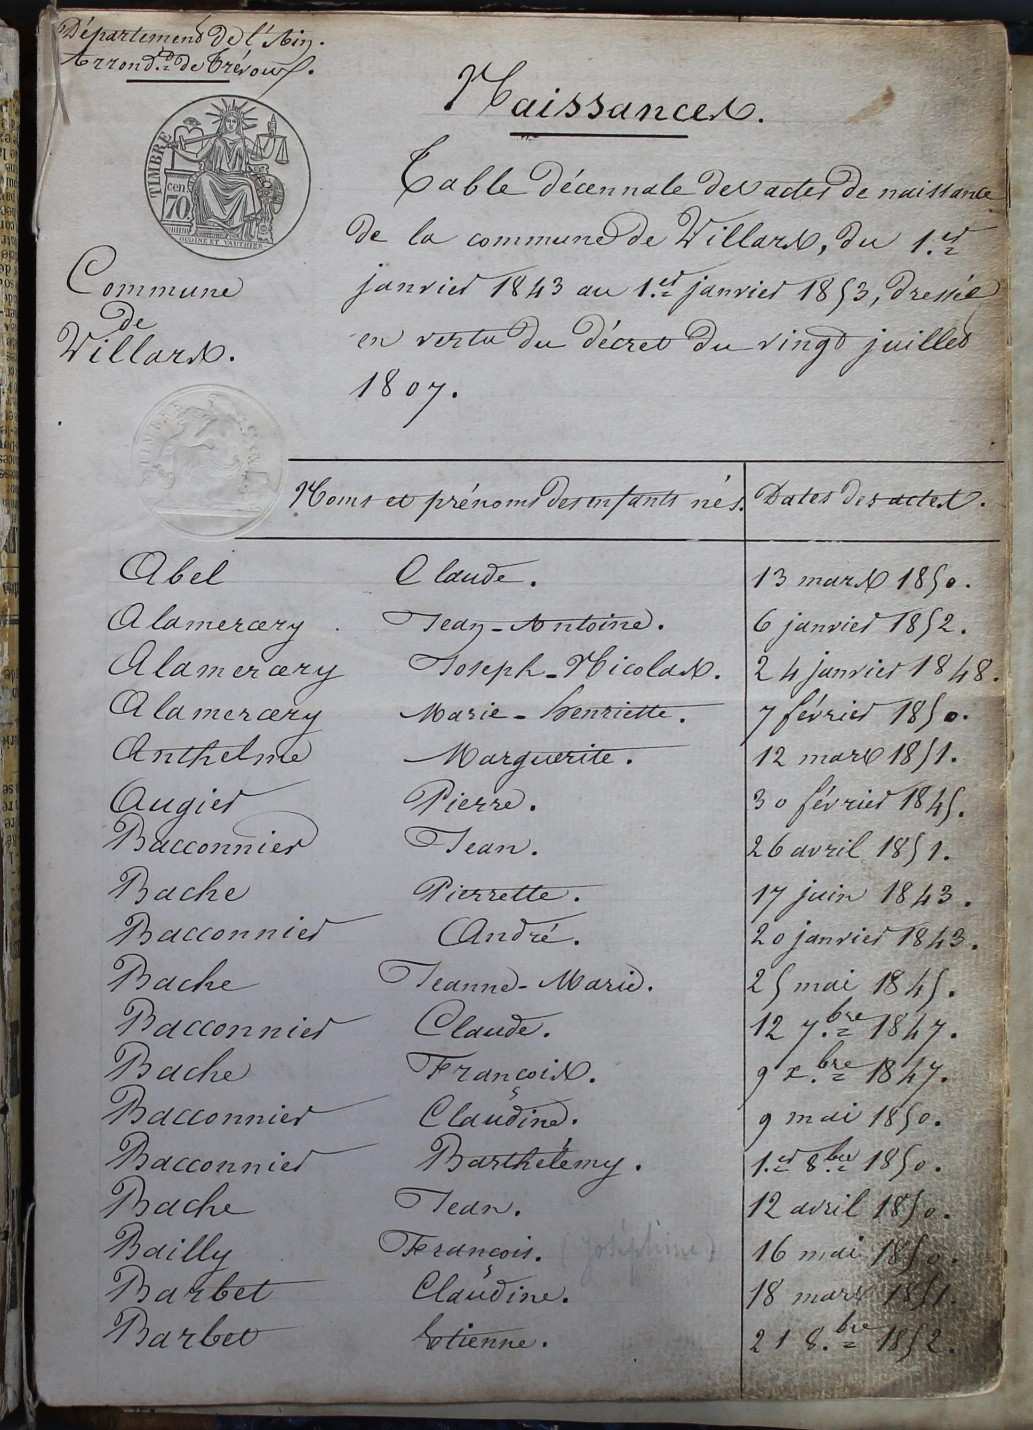 Département de l'Ain.
Arrond.t de Trévoux.
TIMBRE
70
cen
Naissances.
Table décennale des actes de naissance
de la commune de Villars, du 1.er
janvier 1843 au 1.er janvier 1853, dressée
en vertu du décret du vingt juillet
1807.
Commune
de
Villars.
Noms et prénoms des enfants nés.	Dates des actes.
Abel	Claude.	13 mars 1850.
Alamercery	Jean-Antoine.	6 janvier 1852.
Alamercery	Joseph-Nicolas.	24 janvier 1848.
Alamercery	Marie-henriette.	7 février 1850.
Anthelme	Marguerite.	12 mars 1851.
Augier	Pierre.	30 février 1845.
Bacconnier	Jean.	26 avril 1851.
Bache	Pierrette.	17 juin 1843.
Bacconnier	André.	20 janvier 1843.
Bache	Jeanne-Marie.	25 mai 1845.
Bacconnier	Claude.	12 7.bre 1847.
Bache	François.	9 x.bre 1847.
Bacconnier	Claudine.	9 mai 1850.
Bacconnier	Barthélemy.	1.er 8.bre 1850.
Bache	Jean.	12 avril 1850.
Bailly	François. (Joséphine)	16 mai 1850.
Barbet	Claudine.	18 mars 1851.
Barbet	Etienne.	21 8.bre 1852.